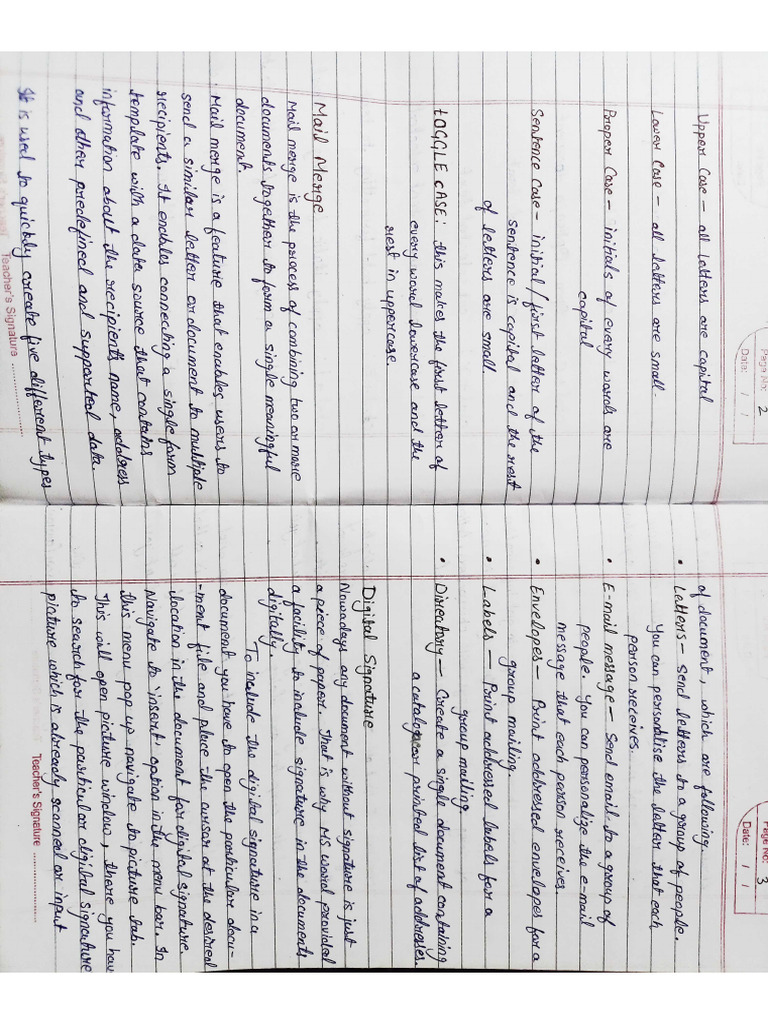 Page No: 2
Date: / /
Upper Case - all letters are capital
Lower Case - all letters are small.
Proper Case - initials of every words are
capital
Sentence Case - initial/first letter of the
sentence is capital and the rest
of letters are small.
tOGGLE cASE: this makes the first letter of
every word lowercase and the
rest in uppercase.
Mail Merge
Mail merge is the process of combining two or more
documents together to form a single meaningful
document.
Mail merge is a feature that enables users to
send a similar letter or document to multiple
recipients. It enables connecting a single form
template with a data source that contains
information about the recipients name, address
and other predefined and supported data
It is used to quickly create five different types
Teacher's Signature
Page No: 3
Date: / /
of document, which are following.
• Letters - Send letters to a group of people.
You can personalise the letter that each
person receives.
• E-mail message - Send email to a group of
people. You can personalize the e-mail
message that each person receives.
• Envelopes - Print addressed envelopes for a
group mailing.
• Labels - Print addressed labels for a
group mailing
• Directory - Create a single document containing
a catalog or printed list of addresses.
Digital Signature
Nowadays any document without signature is just
a piece of paper. That is why MS word provided
a facility to include signature in the documents
digitally.
To include the digital signature in a
document you have to open the particular docu-
-ment file and place the cursor at the desired
location in the document for digital signature.
Navigate to 'insert' option in the menu bar. In
this menu pop up navigate to picture tab.
This will open picture window, there you have
to search for the particular digital signature
picture which is already scanned or input
Teacher's Signature